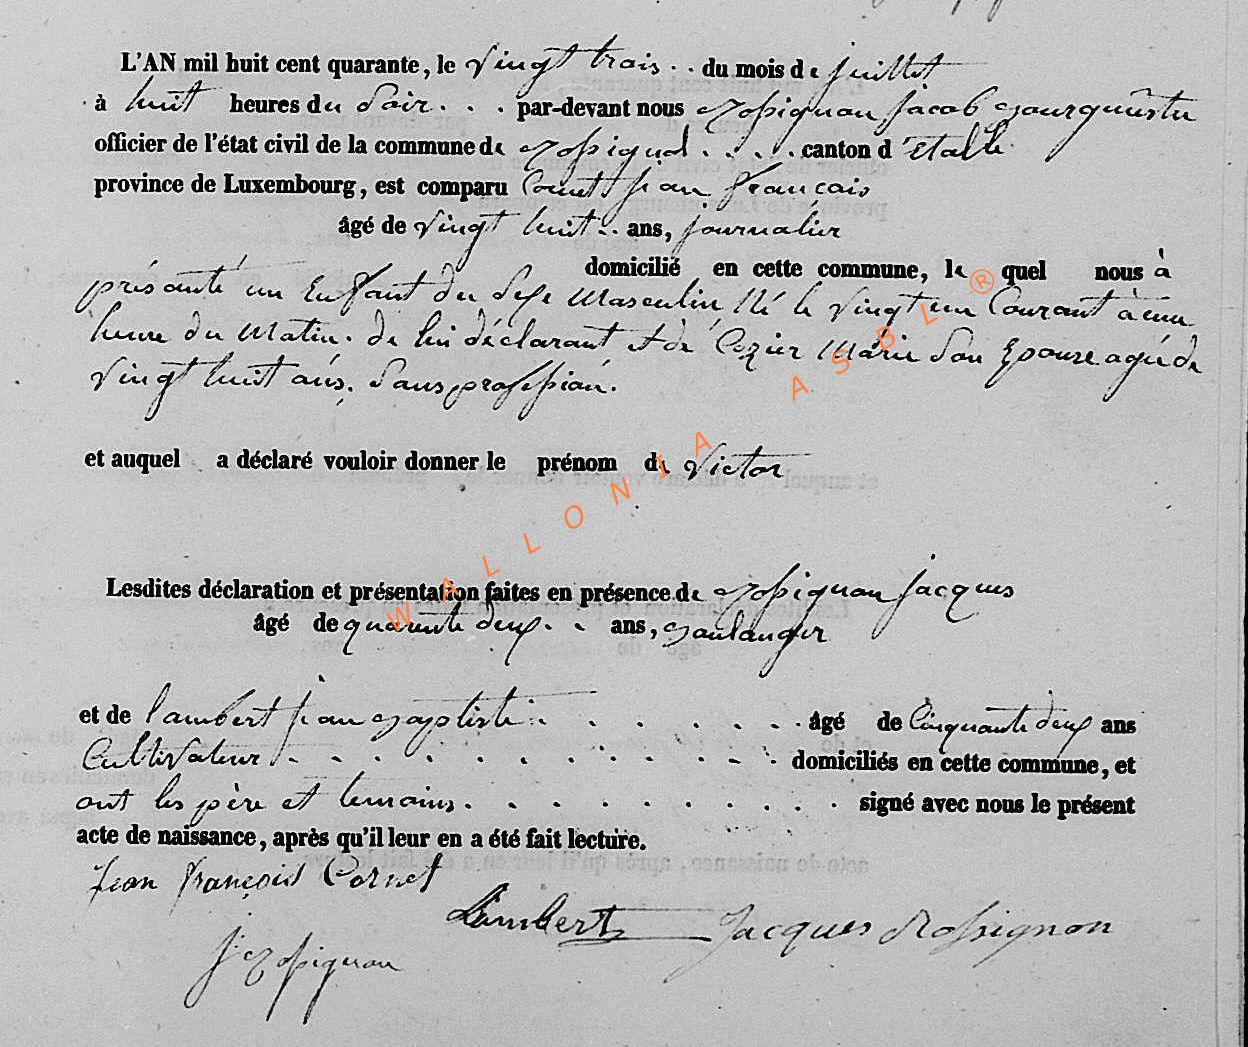 L'AN mil huit cent quarante, le vingt trois . . du mois de juillet
à huit heures du Soir . . . par-devant nous Rossignon Jacob Bourguemestre
officier de l'état civil de la commune de Rossignol . . . . canton d'Etalle
province de Luxembourg, est comparu Cornet jean français
âgé de vingt huit . . ans, journalier
domicilié en cette commune, le quel nous à
présanté un Enfant du Sexe Masculin, Né le vingt un Courant à une
heure du Matin. de lui déclarant et de Cozier Marie Son Epouse agée de
vingt huit ans. Sans profession.
et auquel a déclaré vouloir donner le prénom de Victor
Lesdites déclaration et présentation faites en présence de Rossignon jacques
âgé de quarante deux . . ans, Boulanger
et de lambert jean Baptiste . . . . . . . âgé de Cinquante deux ans
Cultivateur . . . . . . . . . . . . domiciliés en cette commune, et
ont les père et temoins . . . . . . . . . . signé avec nous le présent
acte de naissance, après qu'il leur en a été fait lecture.
Jean François Cornet
Lambert Jacques Rossignon
J Rossignon
WALLONIA ASBL ®